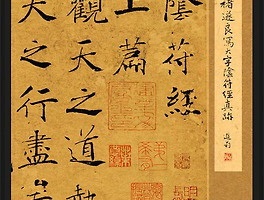 褚遂良寫大字陰符經真跡
陰符經
上篇
觀天之道執
天之行盡矣